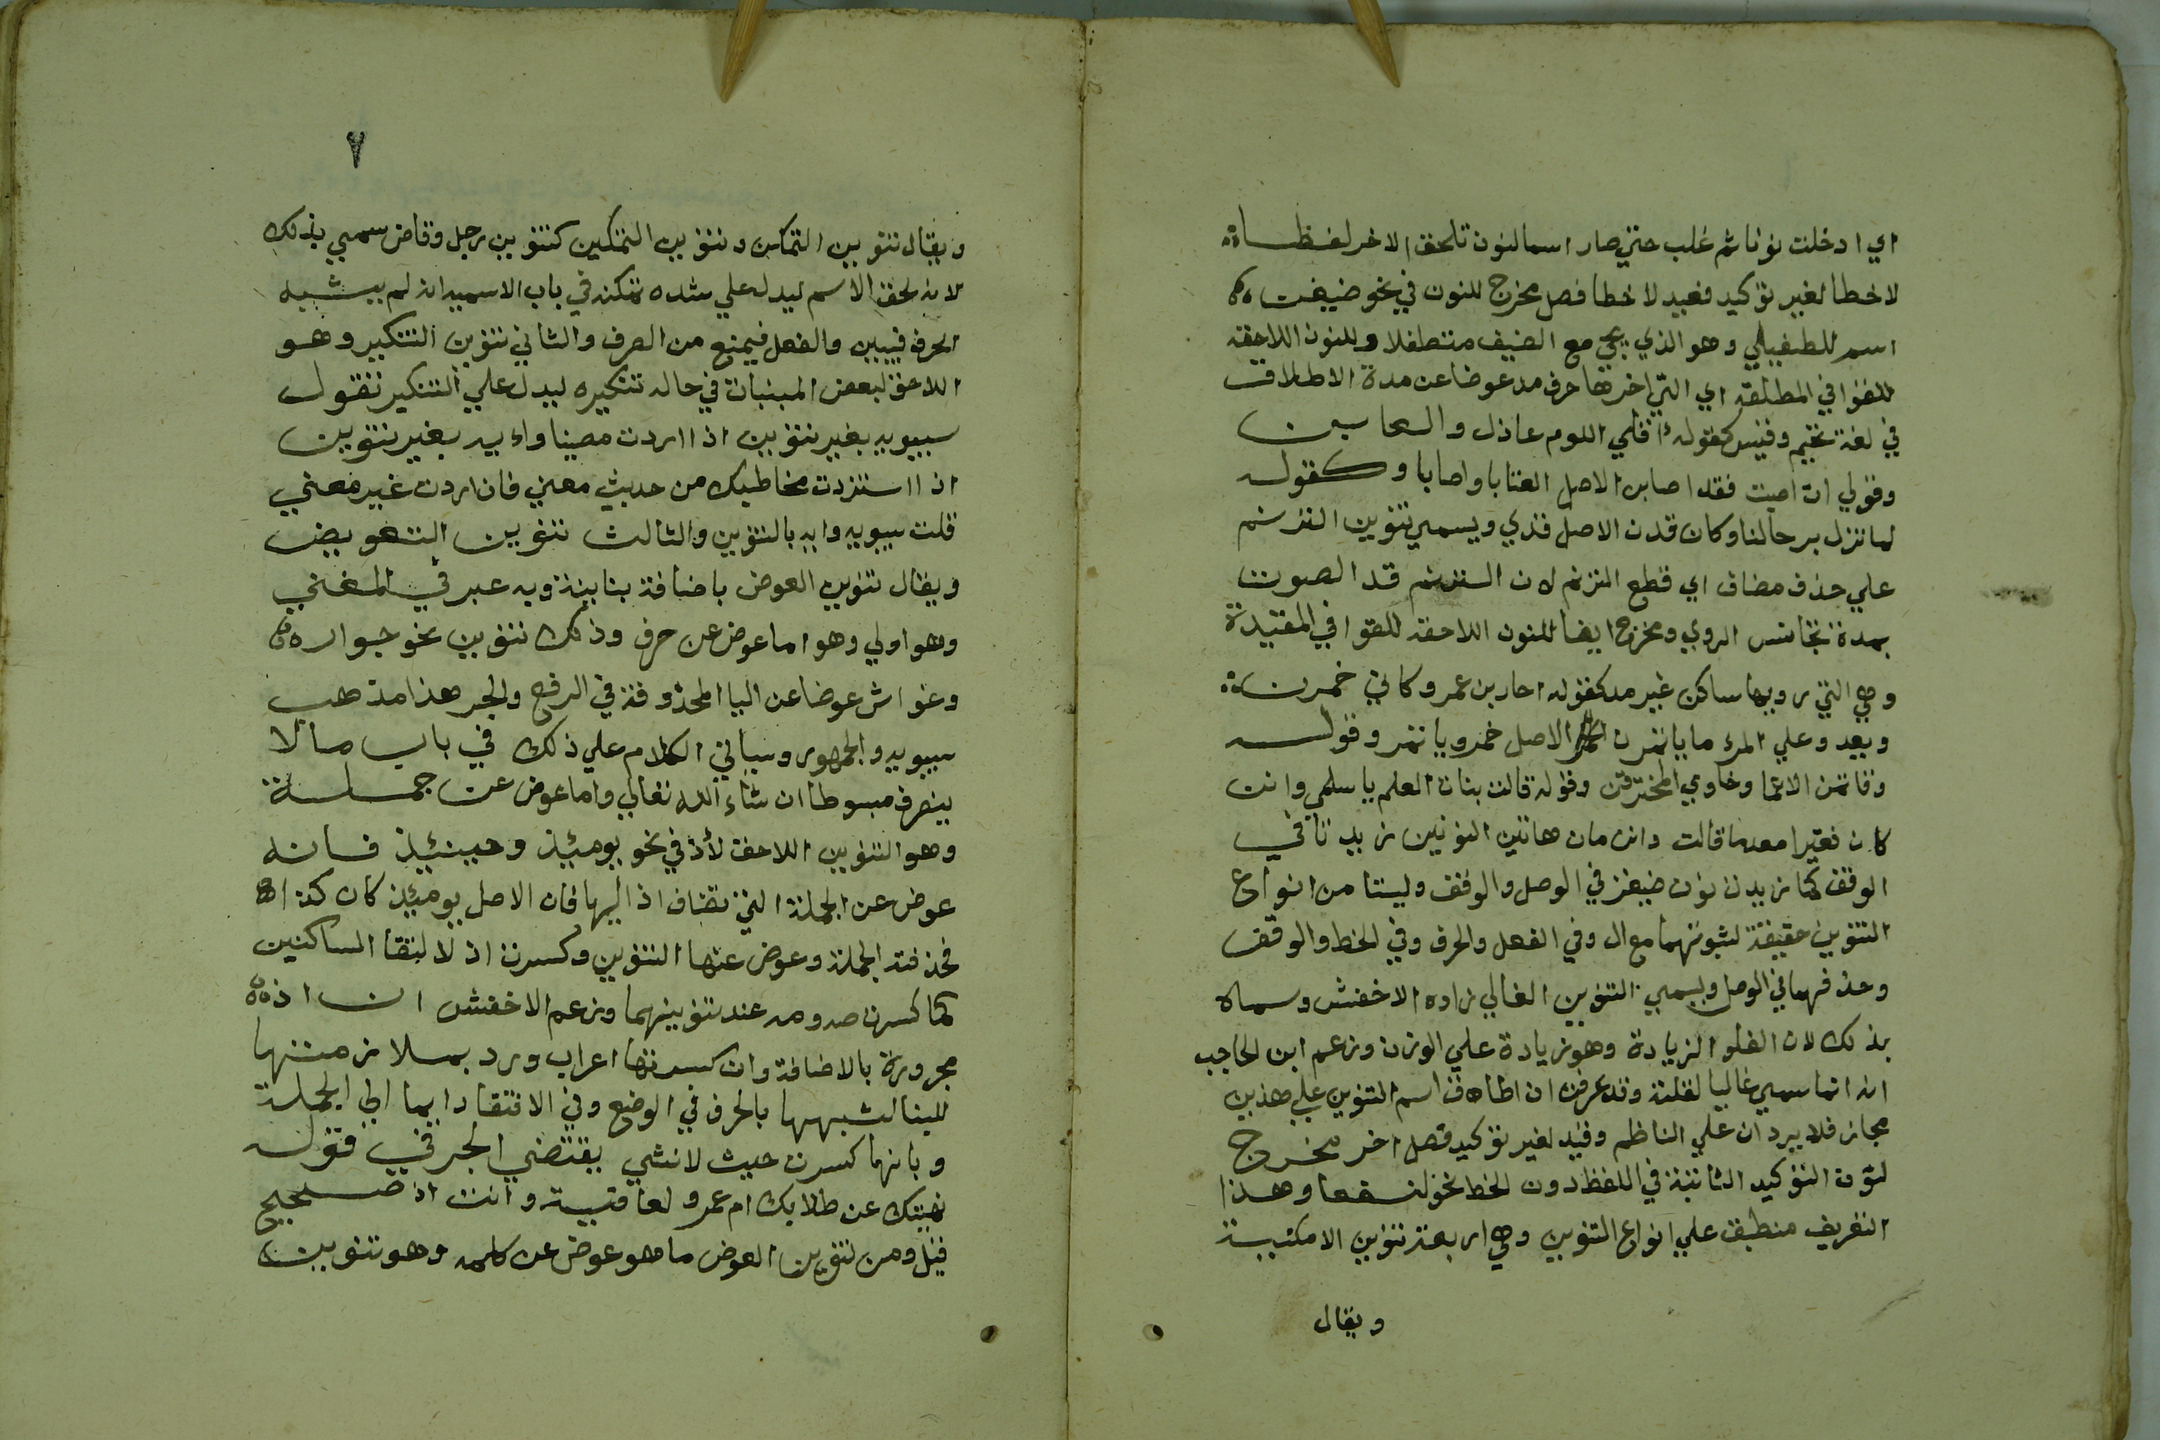 اي ادخلت نونا ثم غلب حتي صار اسما لنون تلحق الاخر لفظا
لا خطا لغير توكيد فقيد لا خطا فصل مخرج للنون في نحو ضيفن
اسم للطفيلي وهو الذي يجي مع الضيف متطفلا وللنون اللاحقة
للقوافي المطلقة اي التي اخرها حرف مد عوضا عن مدة الاطلاق
في لغة تميم وقيس كقوله اقلي اللوم عاذل والعتابن
وقولي ان اصبت فقد اصابن الاصل العتابا واصابا وكقوله
لما تزل برحالنا وكان قدن الاصل قدي ويسمي تنوين الترنم
علي حذف مضاف اي قطع الترنم لان الترنم قد الصوت
بمدة تجانس الروي ومخرج ايضا للنون اللاحقة للقوافي المقيدة
وهي التي رويها ساكن غير مد كقوله احار بن عمرو كاني خمرن
ويعد وعلي المرء ما ياتمرن الاصل خمر ويا تمر وقوله
وقاتمن الاعما وخاوي المخترقن وقوله قالت بنات العلم يا سلمي وانن
كان فقيرا معدما قالت وانن مان هاتين النونين زيدتا في
الوقف كما زيدت نون ضيفن في الوصل والوقف وليستا من انواع
التنوين حقيقة لثبوتهما مع ال وفي الفعل والحرف وفي الخط والوقف
وحذفهما في الوصل ويسمي التنوين الغالي زاده الاخفش وسماه
بذلك لان الغلو الزيادة وهو زيادة علي الوزن وزعم ابن الحاجب
انه انما سمي غاليا لقلته وقد عرفت ان اطلاق اسم التنوين علي هذين
مجاز فلا يردان علي الناظم وقيد لغير توكيد فصل اخر مخرج
لنون التوكيد الثابتة في اللفظ دون الخط نحو لنسفعا وهذا
التعريف منطبق علي انواع التنوين وهي اربعة تنوين الامكنية
ويقال
٢
ويقال تنوين التمكن وتنوين التمكين كتنوين رجل وقاض سمي بذلك
لانه لحق الاسم ليدل علي شدة تمكنه في باب الاسمية انه لم يشبه
الحرف فيبني والفعل فيمنع من الصرف والثاني تنوين التنكير وهو
اللاحق لبعض المبنيات في حالة تنكيره ليدل علي التنكير تقول
سيبويه بغير تنوين اذا اردت معينا وايه بغير تنوين
اذا استزدت مخاطبك من حديث معين فان اردت غير معين
قلت سيبويه وايه بالتنوين والثالث تنوين التعويض
ويقال تنوين العوض باضافة بيانية وبه عبر في المغني
وهو اولي وهو اما عوض عن حرف وذلك تنوين نحو جوار
وغواش عوضا عن اليا المحذوفة في الرفع والجر هذا مذهب
سيبويه والجمهور وسياتي الكلام علي ذلك في باب ما لا
ينصرف مبسوطا ان شاء الله تعالي واما عوض عن جملة
وهو التنوين اللاحق لأذ في نحو يومئذ وحينئذ فانه
عوض عن الجملة التي تضاف اذ اليها فان الاصل يوم اذ كان كذا
فحذفت الجملة وعوض عنها التنوين وكسرت اذ لالتقا الساكنين
كما كسرت صه ومه عند تنوينهما وزعم الاخفش ان اذ
مجرورة بالاضافة وان كسرتها اعراب ورد بملازمتها
للبنا لشبهها بالحرف في الوضع وفي الافتقار دايما الي الجملة
وبانها كسرت حيث لا شي يقتضي الجر في قوله
نهيتك عن طلابك ام عمرو لعاقبة وانت اذ صحيح
قيل ومن تنوين العوض ما هو عوض عن كلمه وهو تنوين